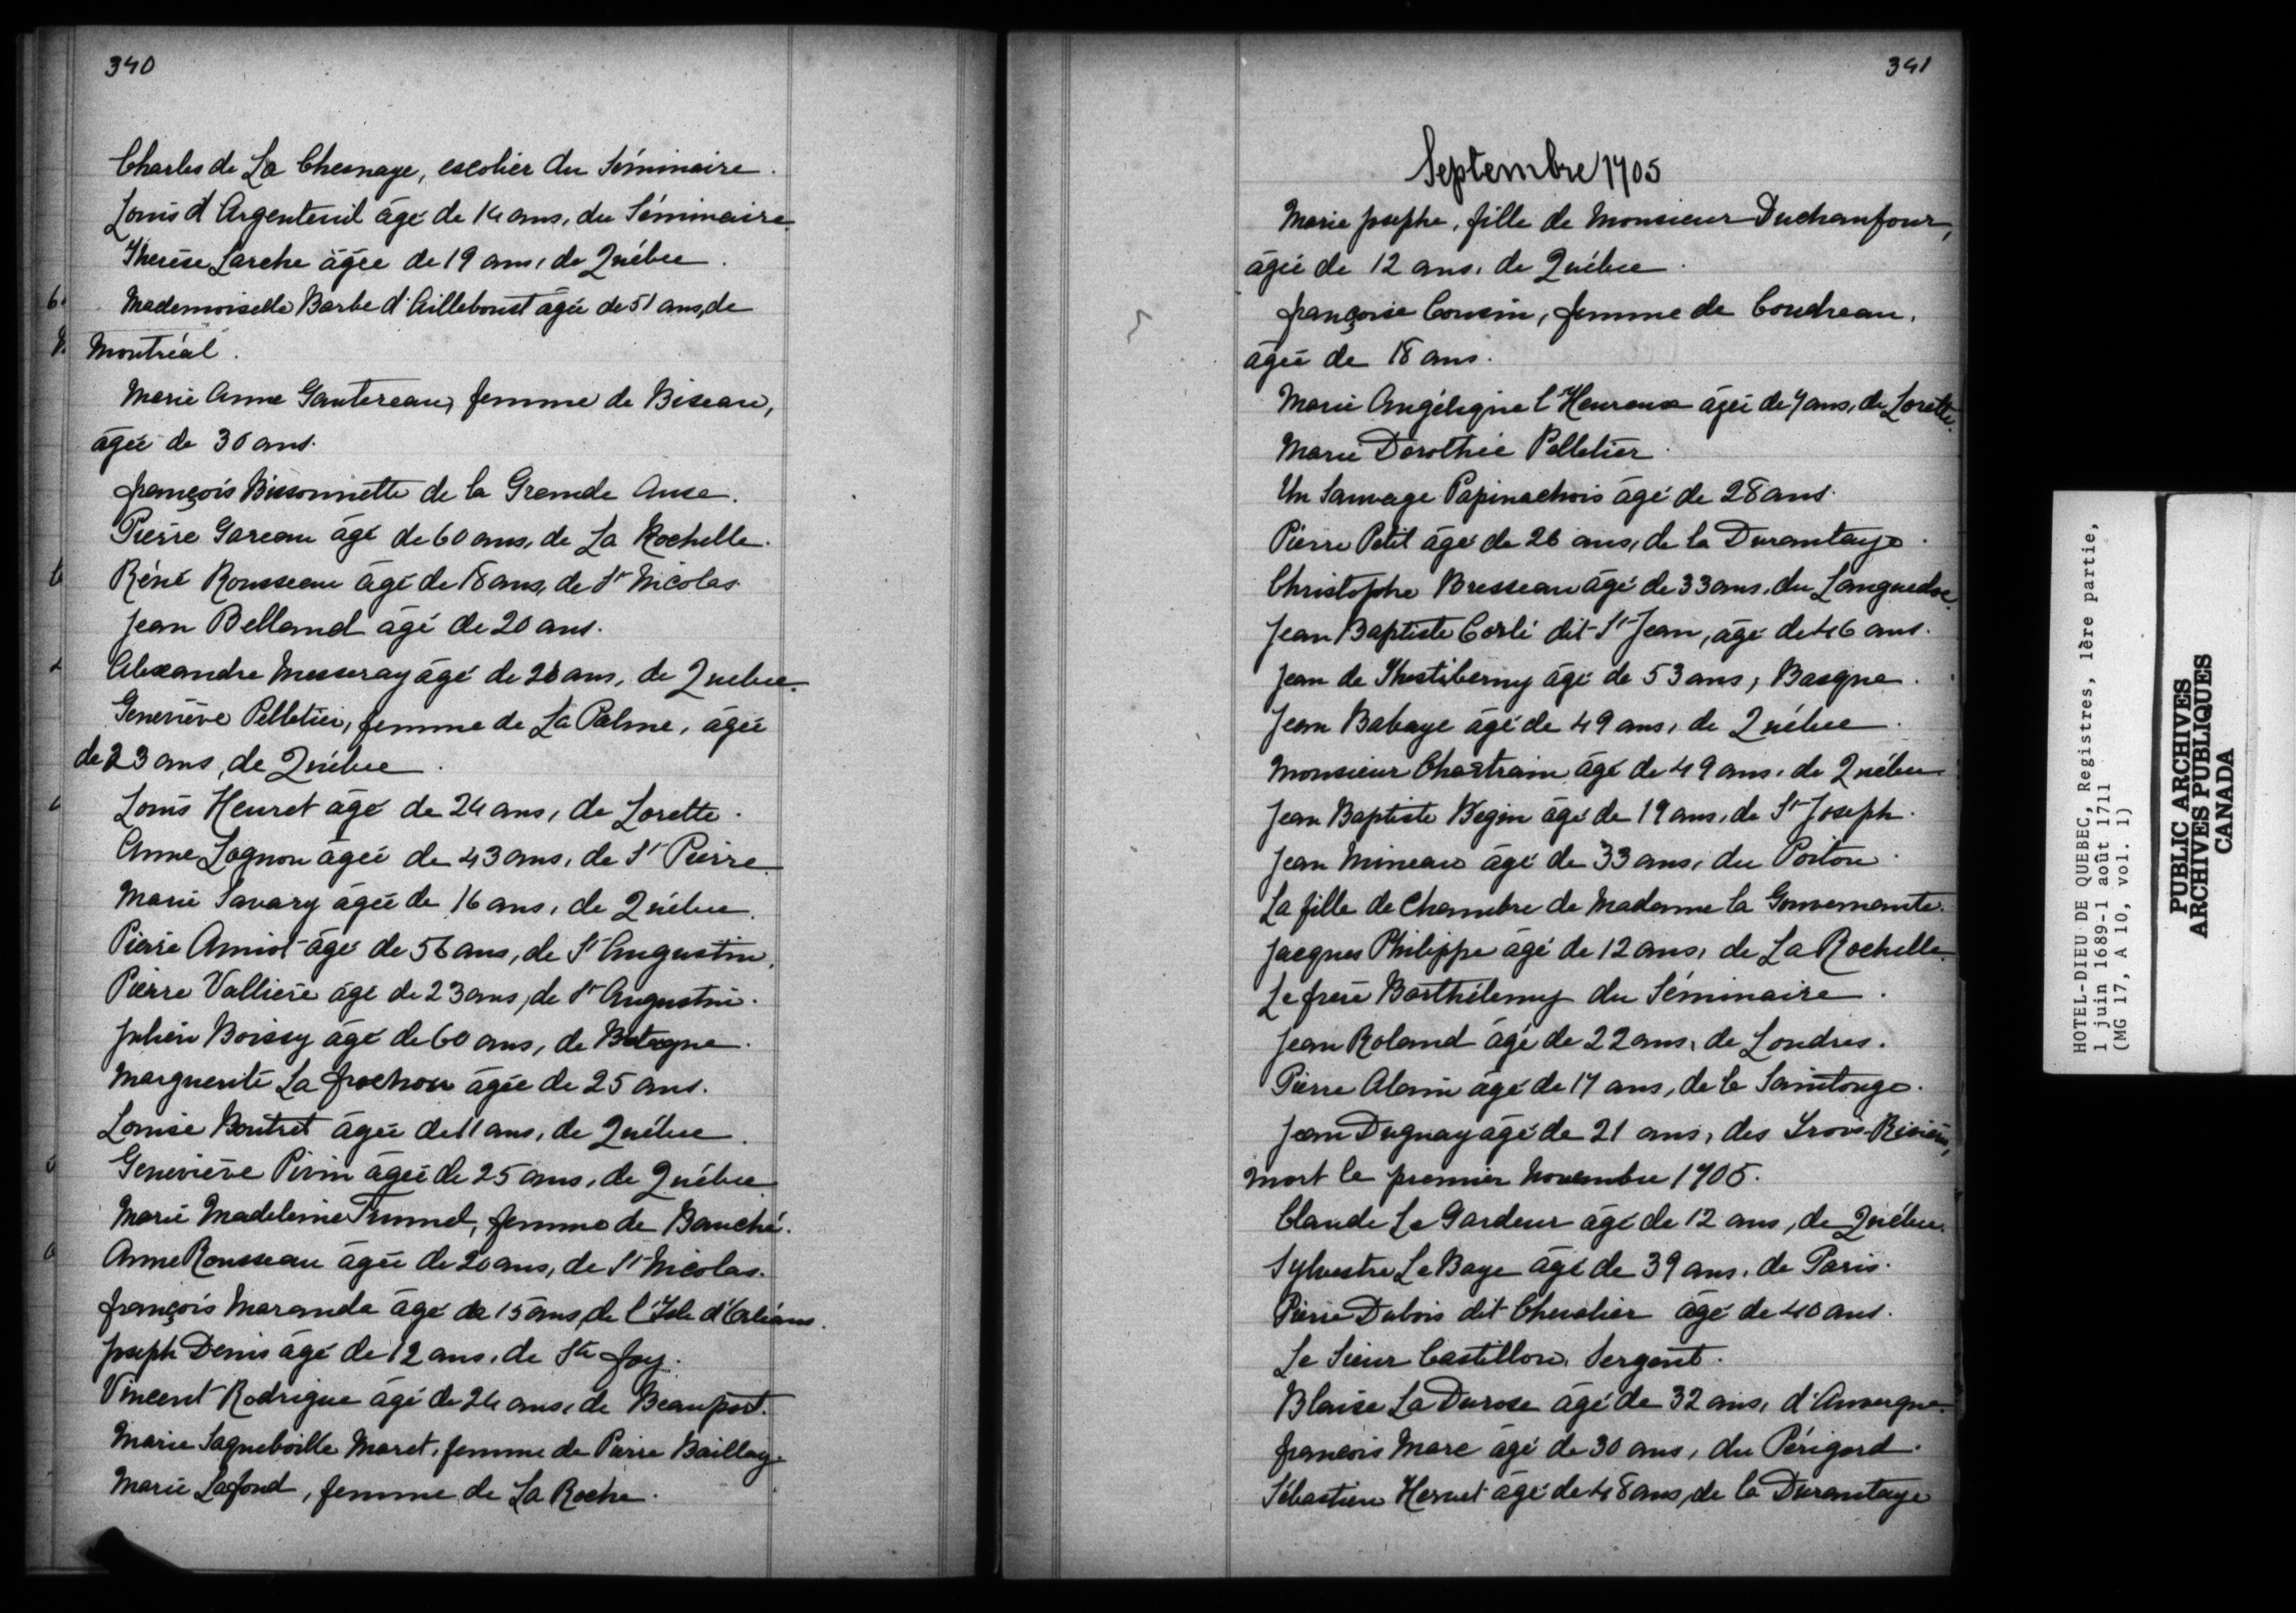 340
Charles de La Chesnaye, escolier du Séminaire.
Louis d'Argenteuil âgé de 14 ans, du Séminaire.
Therèse Larche âgée de 19 ans, de Québec.
Mademoiselle Barbe d'Ailleboust âgée de 51 ans, de
Montréal.
Marie Anne Gautereau, femme de Biseau,
âgée de 36 ans.
françois Bissonnette de la Grande Anse.
Pierre Gareau âgé de 60 ans, de La Rochelle.
Réné Rousseau âgé de 18 ans, de St Nicolas.
Jean Belland âgé de 20 ans.
Alexandre Messeray âgé de 26 ans, de Quebec.
Geneviève Pelletier, femme de La Palme, âgée
de 23 ans, de Québec.
Louis Heuret âgé de 24 ans, de Lorette.
Anne Lognon âgée de 43 ans, de St Pierre.
Marie Savary âgée de 16 ans, de Québec.
Pierre Amiot âgé de 56 ans, de St Augustin.
Pierre Vallière âgé de 23 ans, de St Augustin.
Julien Boissy âgé de 60 ans, de
Marguerite La frochon âgée de 25 ans.
Louise Boutret âgée de 11 ans, de Québec.
Geneviève Pivin âgée de 25 ans, de Québec.
Marie Madeleine Trumel, femme de Bauché.
Anne Rousseau âgée de 20 ans, de St Nicolas.
françois Maranda âgé de 15 ans, de l'Isle d'Orléans.
Joseph Denis âgé de 12 ans, de Ste foy.
Vincent Rodrigue âgé de 24 ans, de Beauport.
Marie Saqueboille Maret, femme de Pierre Baillag
Marie Lafond, femme de La Roche.
341
Septembre 1705
Marie Josephe, fille de Monsieur Duchaufour,
âgée de 12 ans, de Québec.
françoise Cousin, femme de Coudreau,
âgée de 18 ans.
Marie Angélique l'Heureux âgée de 7 ans, de Lorette.
Marie Dorothée Pelletier.
Un Sauvage Papinachois âgé de 28 ans.
Pierre Petit âgé de 26 ans, de la Durantaye.
Christophe Bresseau âgé de 33 ans, du Languedoc.
Jean Baptiste Corlé dit St Jean, âgé de 46 ans.
Jean de âgé de 53 ans, Basque.
Jean Babaye âgé de 49 ans, de Québec.
Monsieur Chastrain âgé de 49 ans, de Québec
Jean Baptiste Begin âgé de 19 ans, de St Joseph.
Jean Mineau âgé de 33 ans, du Poitou.
La fille de Chambre de Madame la Gouvernante.
Jacques Philippe âgé de 12 ans, de La Rochelle.
Le frere Barthélemy du Séminaire.
Jean Roland âgé de 22 ans, de Londres.
Pierre Alain âgé de 17 ans, de la Saintonge.
Jean Duguay âgé de 21 ans, des Trois-Rivières,
mort le premier Novembre 1705.
Claude Le Gardeur âgé de 12 ans, de Québec.
Sylvestre Le Baye âgé de 39 ans, de Paris.
Pierre Dubois dit Chevalier âgé de 40 ans.
Le Sieur Castillon, Sergent.
Blaise La Durose âgé de 32 ans, d'Auvergne.
françois Marc âgé de 30 ans, du Périgord.
Sébastien Hervet âgé de 48 ans, de la Durantaye
HOTEL-DIEU DE QUEBEC, Registres, 1ère partie,
1 juin 1689-1 août 1711
(MG 17, A 10, vol. 1)
PUBLIC ARCHIVES
ARCHIVES PUBLIQUES
CANADA